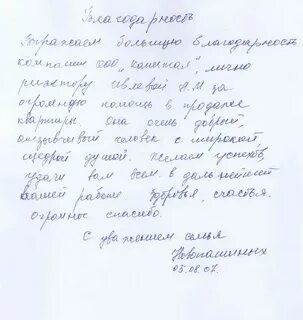 Благодарность
Выражаем большую благодарность
компании ООО "Капитал", лично
риэлтору Ивлевой А.И за
огромную помощь в продаже
квартиры она очень добрый
отзывчивый человек с широкой
щедрой душой. Желаем успехов,
удачи вам всем в дальнейшей
вашей работе. Здоровья, счастья.
Огромное спасибо.
С уважением семья
Новопашиных
05.08.07.